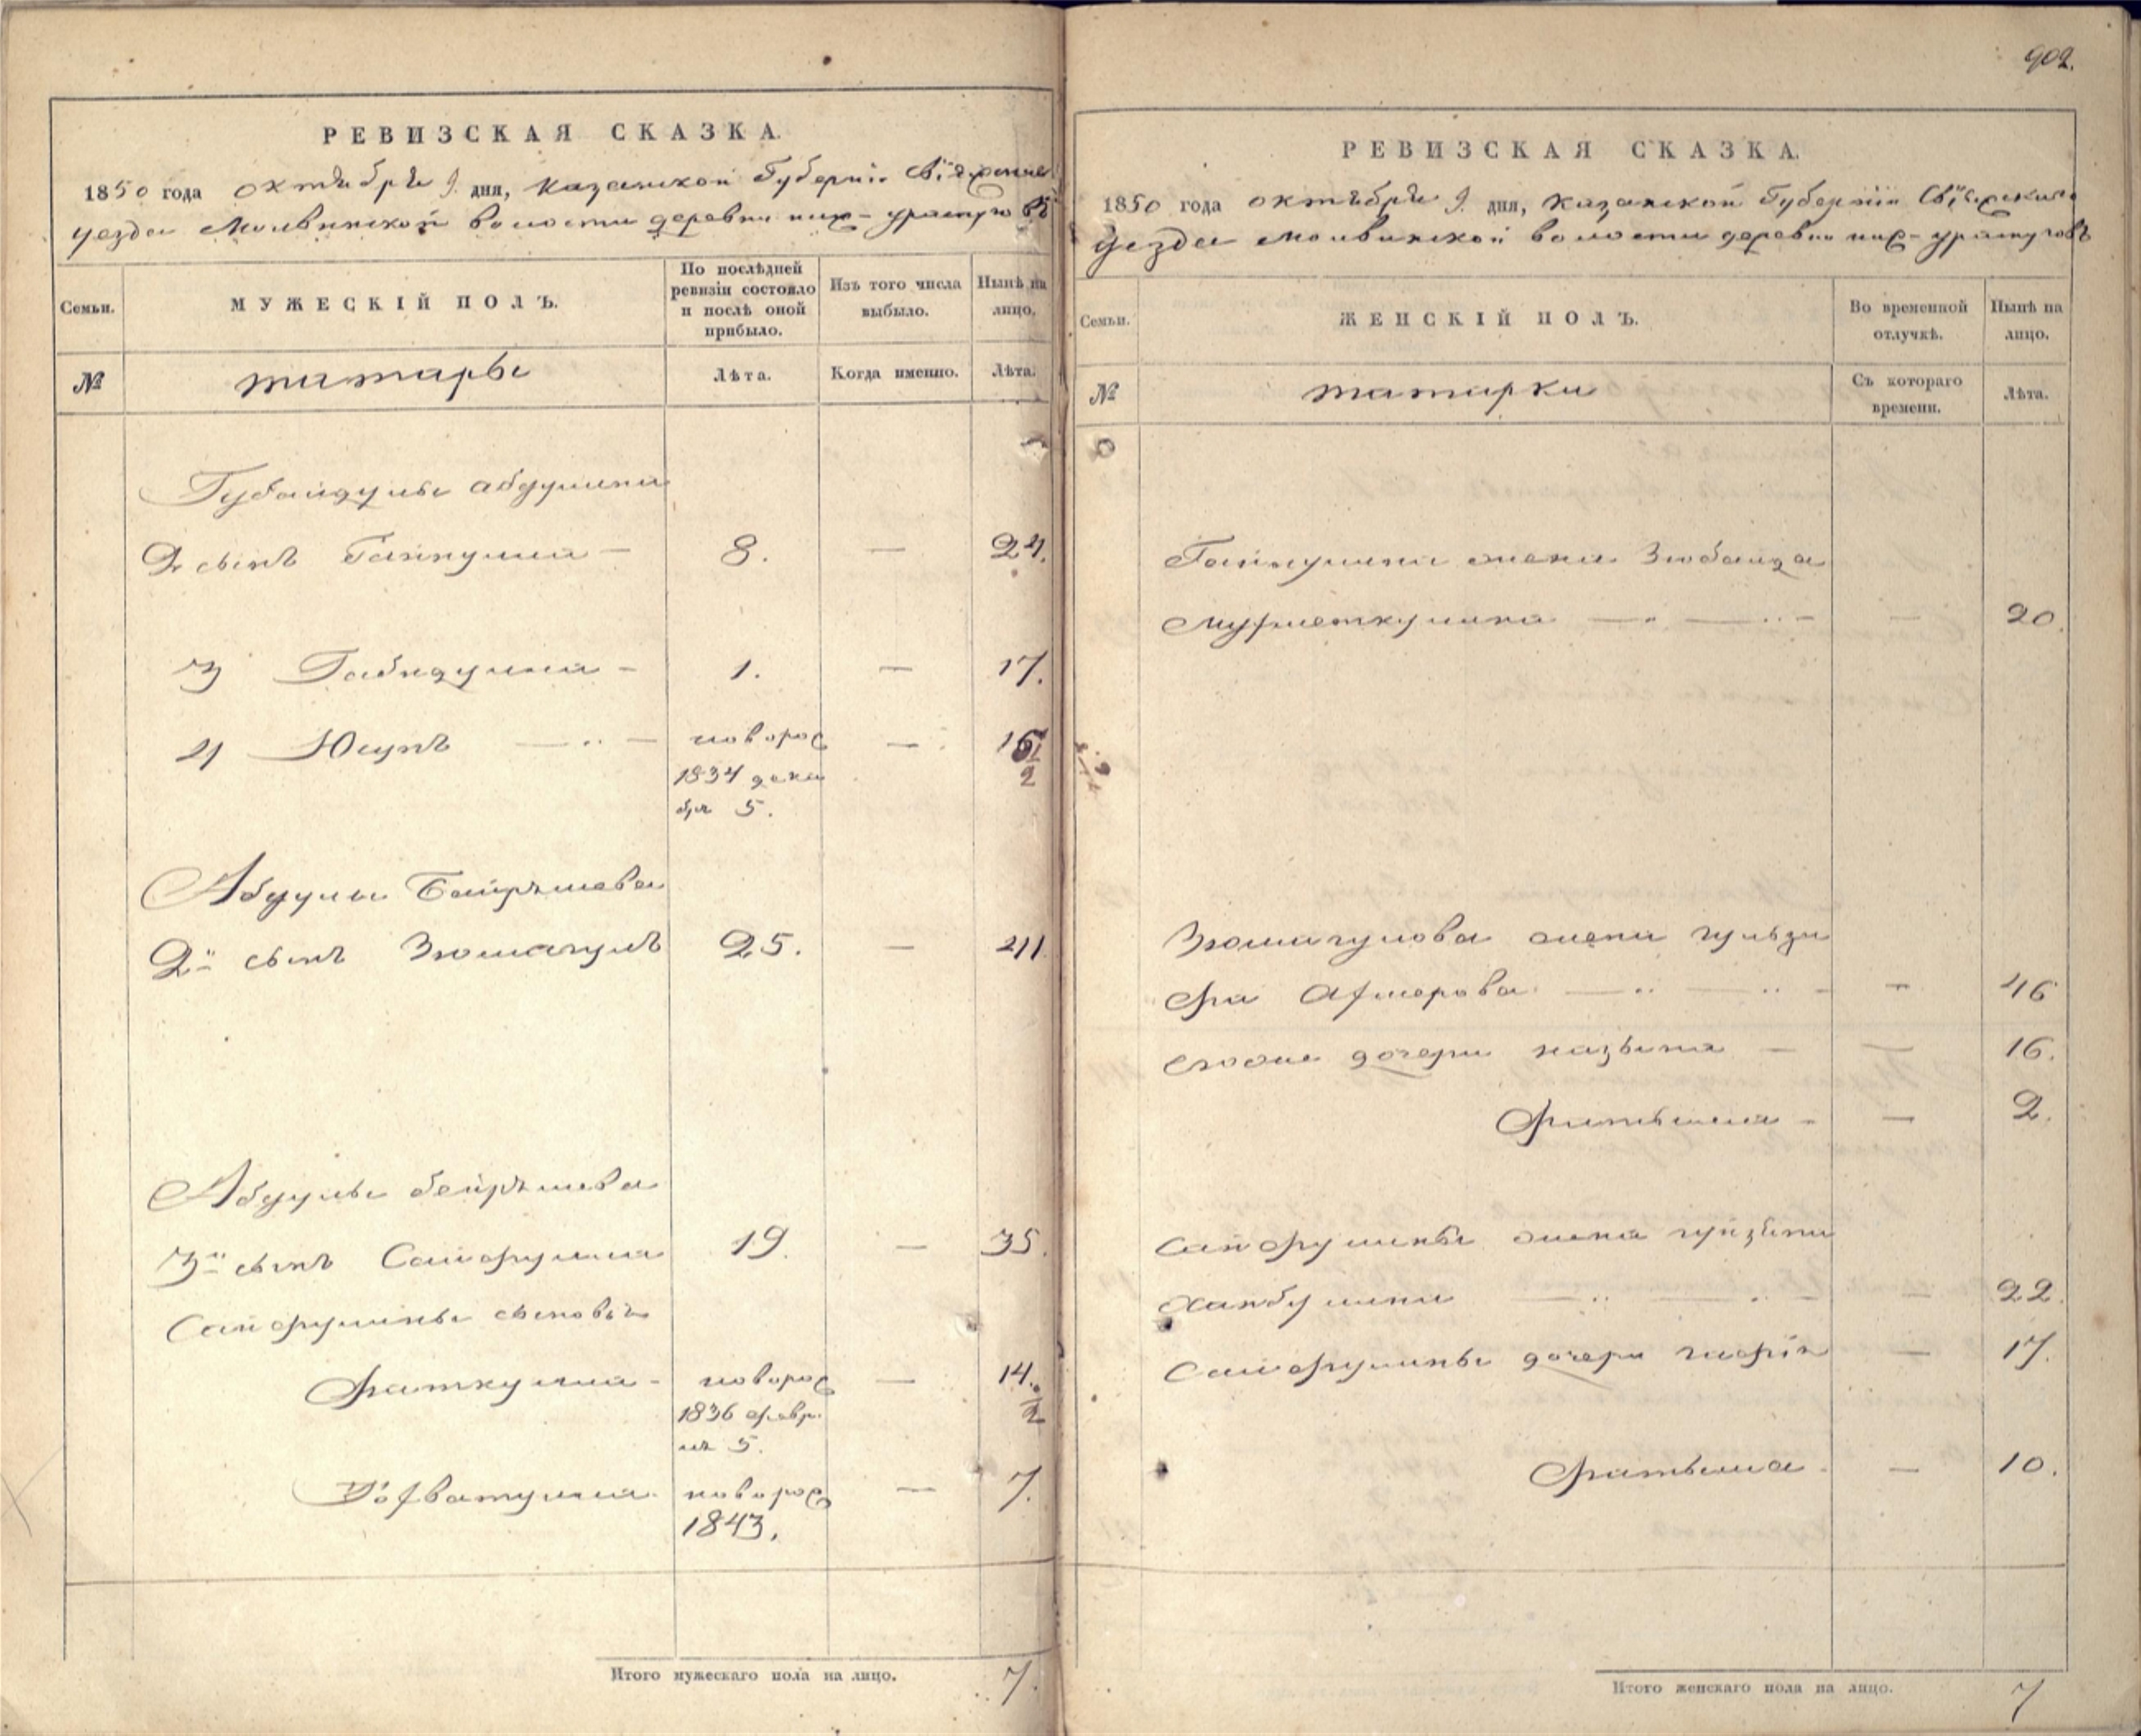 902.
РЕВИЗСКАЯ СКАЗКА.
1850 года октября 9. дня, казанской Губерніи Свіяжскаго
уезда Молвинской волости деревни ниж-уратуговъ
Семьи.
МУЖЕСКІЙ ПОЛЪ.
По послѣдней ревизіи состояло и послѣ оной прибыло.
Изъ того числа выбыло.
Нынѣ на лицо.
№
татары
Лѣта.
Когда именно.
Лѣта.
Губайдулы абдулина
2 сынъ Гайнулла — 8. — 24.
3 Габидулла — 1. — 17.
4 Юсупъ — новорож — 16
1834 дека 1/2
бря 5.
Абдулы Байряшева
2й сынъ Зюмагулъ 25. — 41
Абдулы бейряшева
3й сынъ Сайфулла 19. — 35.
Сайфуллины сыновья
Фаткулла - новорож — 14.
1836 февр. 1/2
ля 5.
новорож — 7.
1843.
Итого мужескаго пола на лицо. 7.
РЕВИЗСКАЯ СКАЗКА.
1850 года октября 9. дня, казанской Губерніи Свіяжскаго
Уезда Молвинской волости деревни ниж-уратуговъ
Семьи.
ЖЕНСКІЙ ПОЛЪ.
Во временной отлучкѣ.
Нынѣ на лицо.
№
татарки
Съ котораго времени.
Лѣта.
Гайнуллина жена Зюбаида
— 20.
Зюмагулова жена гульзя
— 46
дочери — 16.
Фатыма - — 2.
Сайфуллины жена
— 22.
Сайфуллины дочери — 17.
Фатыма — 10.
Итого женскаго пола на лицо. 7